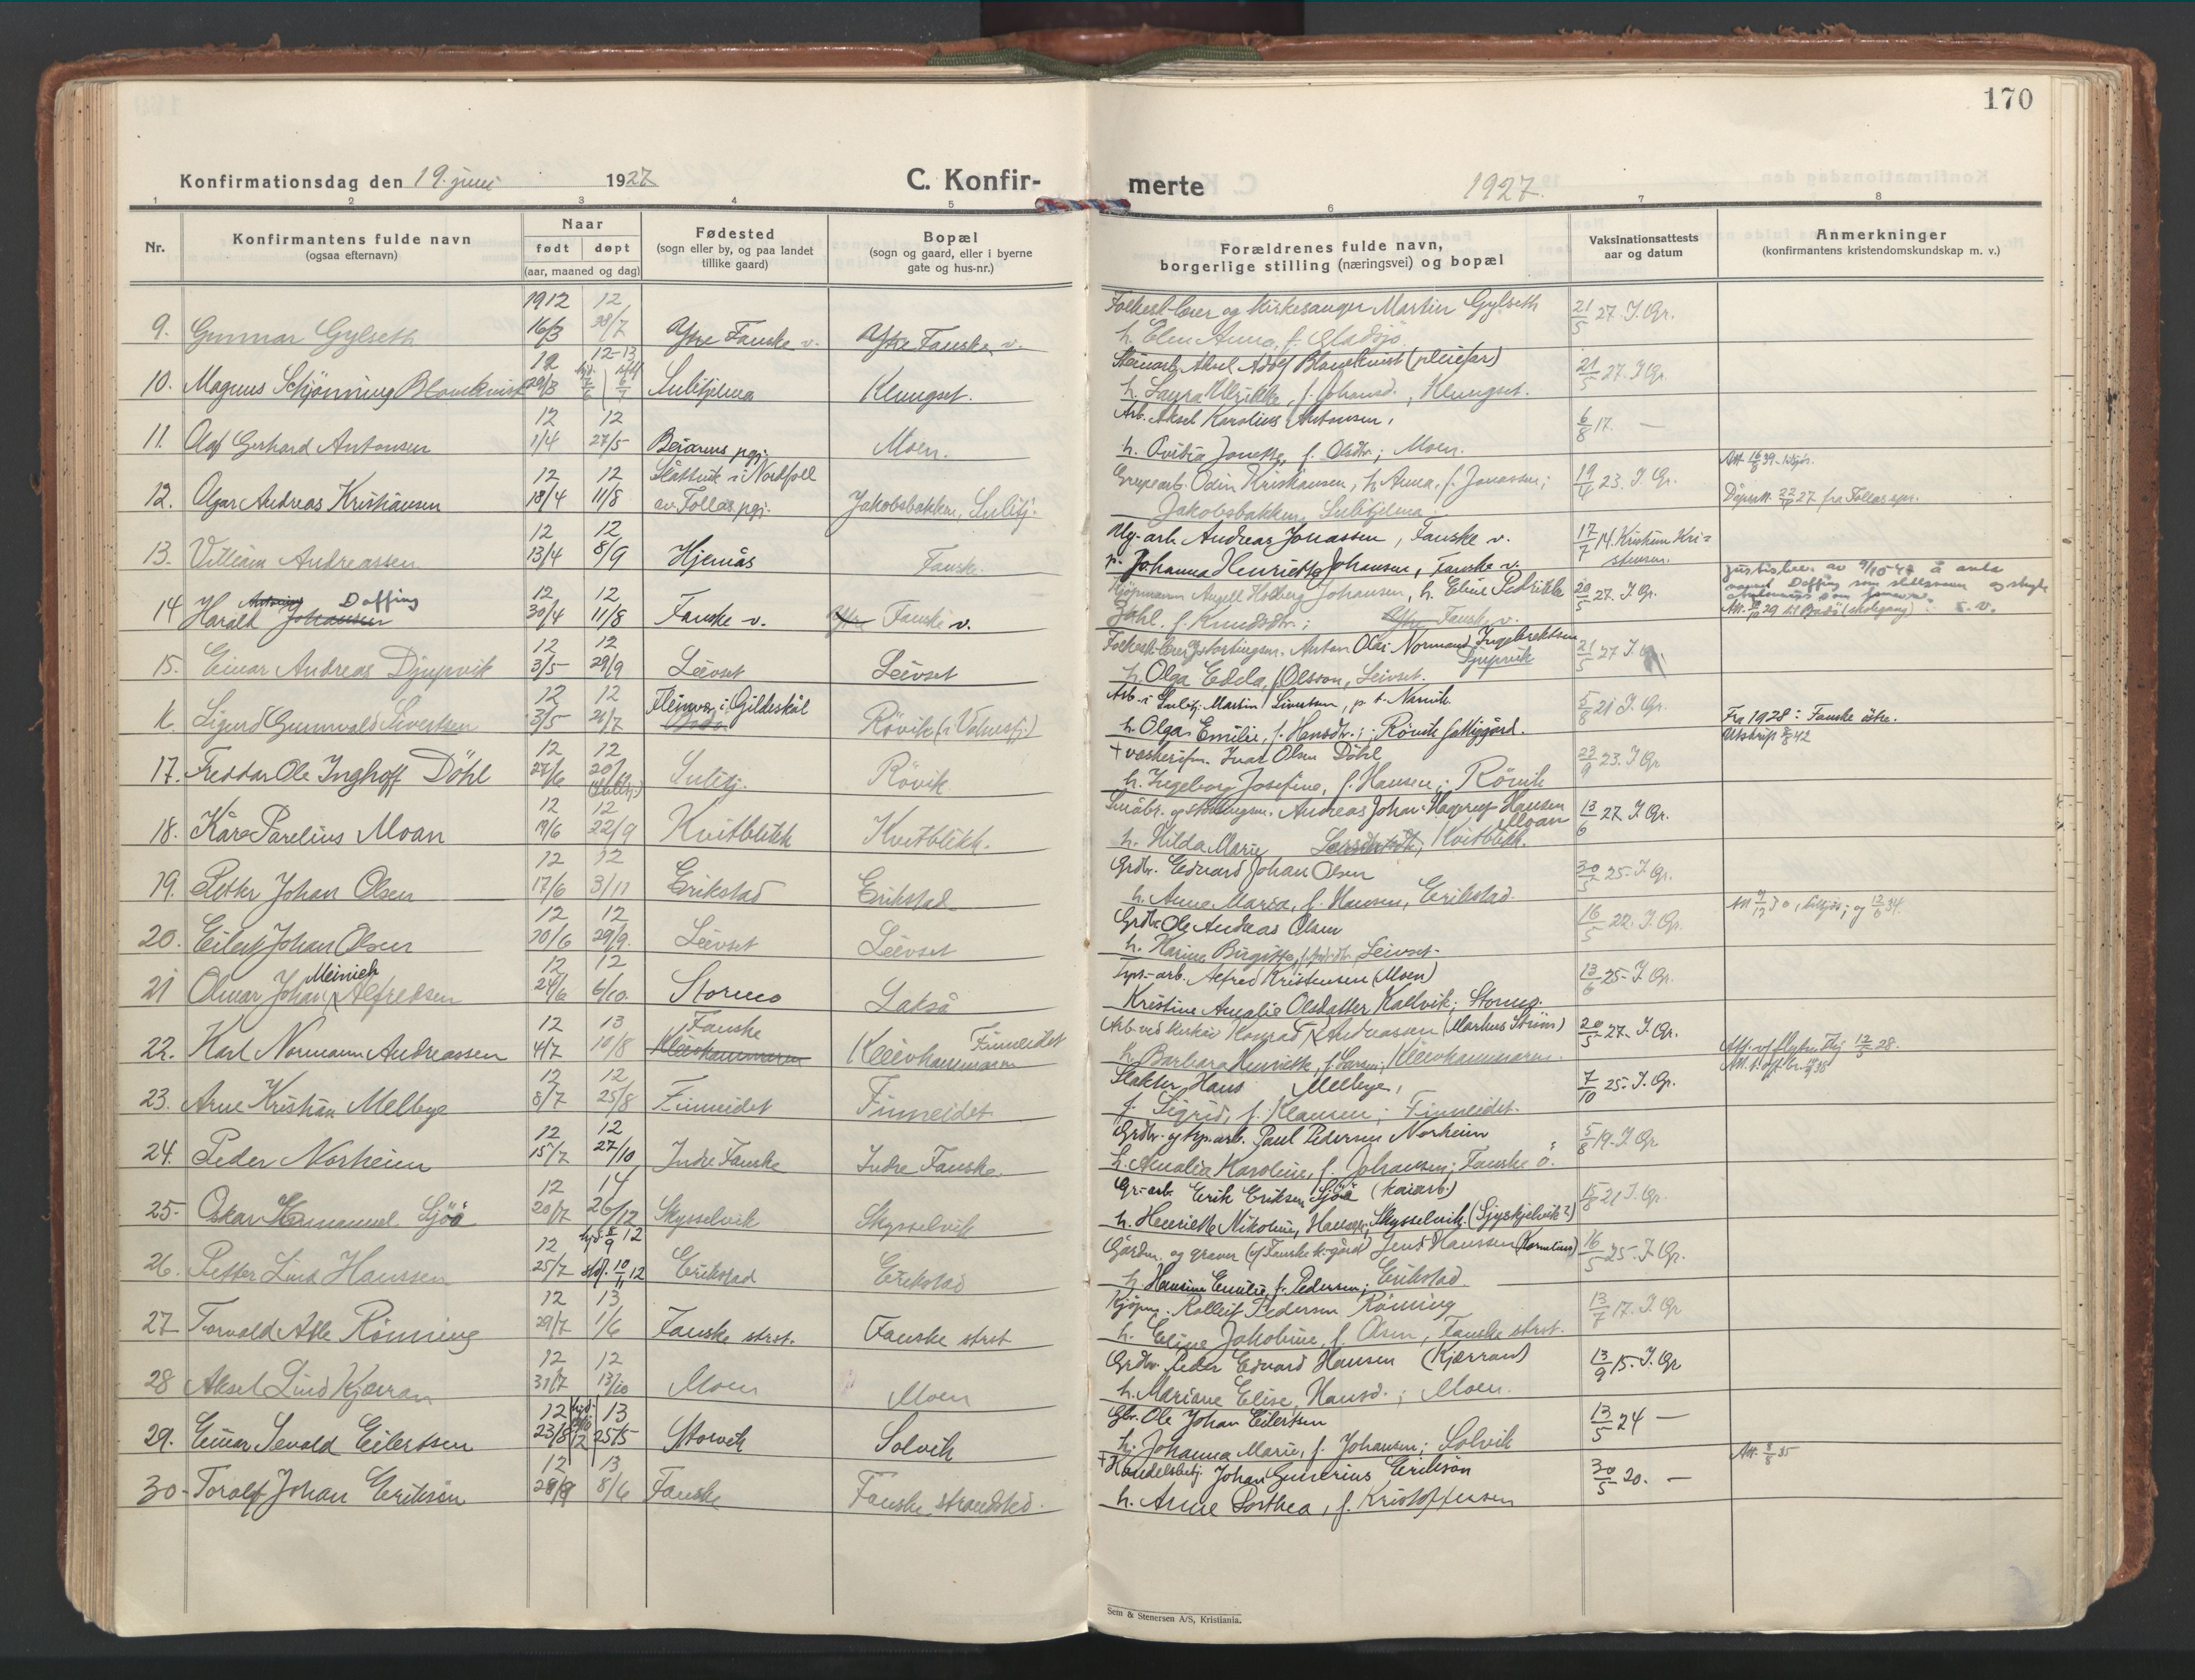 170
Konfirmationsdag den 19. juni 1927
C. Konfirmerte
1927.
1 2 3 4 5 6 7 8
Nr.
Konfirmantens fulde navn
(ogsaa efternavn)
Naar
født døpt
(aar, maaned og dag)
Fødested
(sogn eller by, og paa landet
tillike gaard)
Bopæl
(sogn og gaard, eller i byerne
gate og hus-nr.)
Forældrenes fulde navn,
borgerlige stilling (næringsvei) og bopæl
Vaksinationsattests
aar og datum
Anmerkninger
(konfirmantens kristendomskundskap m. v.)
9. Gunnar Gylseth 1912 16/3 12 28/7 Ytre Fauske v. Ytre Fauske v.
Folkesk-lærer og kirkesanger Martin Gylseth
h. Elen Anna, f. Gladsjø. 21/5 27. I. Gr.
10. Magnus Schjønning Blomkvist 12 29/3 12-13 Sulitjelma Klungset.
Aksel Adolf Blomkvist (pleiefar)
h. Laura Ulrikke, f. Johansd., Klungset. 21/5 27. I Gr.
11. Olaf Gerhard Antonsen 12 1/4 12 27/5 Beiarens pgj. Moen.
Arb. Aksel Karolius Antonsen,
h. Ovidia Jonette, f. Olsdtr.; Moen. 6/8 17. —
12. Olgar Andreas Kristiansen 12 18/4 12 11/8 Slåttvik i Nordfoll
av Foldas pgj. Jakobsbakken, Sulitj.
Grupearb. Odin Kristiansen, h. Anna, f. Jonassen;
Jakobsbakken, Sulitjelma. 19/4 23. I. Gr.
Att. 16/8 39
Dåpsatt. 22/4 27 fra Foldas spr.
13. Villiam Andreassen 12 13/4 12 8/9 Hjemås Fauske.
Ug-arb. Andreas Jonassen, Fauske v.
p. Johanna Henriette Johansen, Fauske v. 17/7 14. Kristian Kri=
stensen.
14 Harald Johansen Doffing 12 30/4 12 11/8 Fauske v. Ytre Fauske v.
Kjøpmann Angell Holberg Johansen, h. Eline Pedrikke
Dahl, f. Knudsdtr.; Ytre Fauske v. 20/5 27. I. Gr.
justisdep. av 9/10-47 å anta
navnet Doffing som slektsnavn og stryke
15. Einar Andreas Djupvik 12 3/5 12 29/9 Leivset Leivset
Anton Olai Normand Ingebrektsen
Djupvik
h. Olga Edela, f. Olsson, Leivset. 21/5 27 I Gr.
Sigurd Gunnvald Sivertsen 12 3/5 12 26/7 Fleinvær i Gildeskål
Røvik (i Valnesfj.)
Arb. i Sulitj. Martin Sivertsen, p. t. Narvik
h. Olga Emilie, f. Hansdtr.; Røvik fattiggård. 5/8 21 I. Gr.
Fra 1928: Fauske østre.
Utskrift 5/8 42
17. Freddar Ole Inghoff Döhl 12 27/6 12 20/1 (Sulitj.) Sulitj. Røvik
+ vaskerifm. Ivar Olsen Döhl
h. Ingeborg Josefine, f. Hansen; Røvik 23/9 23. I Gr
18. Kåre Parelius Moan 12 14/6 12 22/9 Kvitblikk Kvitblikk.
Småbr. og Andreas Johan Hagerup Hansen
Moan
h. Hilda Marie Larsdatter, Kvitblikk. 13/6 27. I Gr.
19. Petter Johan Olsen 12 17/6 12 3/11 Erikstad Erikstad
Grdbr. Edvard Johan Olsen
h. Anna Maria, f. Hansen, Erikstad. 30/5 25. I. Gr.
20. Eilert Johan Olsen 12 20/6 12 29/9. Leivset Leivset
Grdbr. Ole Andreas Olsen
h. Karine Birgitte, Leivset. 16/5 22. I. Gr.
21 Olmar Johan Meinich Alfredsen 12 24/6 12 6/10. Stormo Lakså
Alfred Kristensen (Moen)
Kristine Amalie Olsdatter Kallvik; Stormo. 13/6 25. I Gr.
22. Karl Normann Andreassen 12 4/7 13 10/8 Fauske Kleivhammaren Kleivhammaren Finneidet
Konrad Andreassen (Markus Strøm)
h. Barbara Henriette, f. Larsen; Kleivhammaren. 20/5 27. I. Gr.
12/5 28.
23. Arne Kristian Melbye 12 8/7 12 25/8 Finneidet Finneidet
Slakter Hans Melbye,
f. Sigrid, f. Klausen; Finneidet. 7/10 25. I. Gr.
24. Peder Norheim 12 15/7 12 27/10 Indre Fauske Indre Fauske.
Grdbr. og Paul Pedersen Norheim
h. Amalia Karoline, f. Johansen; Fauske ö. 5/8 19. I Gr
25. Oskar Hermannel Sjöå 12 20/7 14 26/12 Skysselvik Skysselvik
Gr-arb. Erik Eriksen Sjöå (kaiarb.)
h. Henriette Nikoline, Hansen; Skysselvik. (Sjyskjelvik?) 15/8 21 I. Gr.
26. Petter Lind Hanssen 12 25/7 hjd 8/9 12 stdf. 10/11 12 Erikstad Erikstad
Gårdm. og graver (v/ Fauske k.-gård) Jens Hanssen (Kornelius)
h. Hansine Emilie, f. Pedersen; Erikstad 16/5 25. I. Gr.
27 Torvald Atle Rönning 12 29/7 13 1/6 Fauske strst. Fauske strst
Kjøpm. Rolleif Pedersen Rönning
h. Eline Jakobine, f. Olsen, Fauske strst. 13/7 17. I. Gr
28 Aksel Lind Kjærran 12 31/7 12 13/10 Moen Moen
Grdbr. Peder Edvard Hansen (Kjærran)
h. Mariane Elise, Hansd.; Moen. 13/9 15. I. Gr
29. Einar Sevald Eilertsen 12 23/8 13 25/5 Storvik Solvik
Gbr. Ole Johan Eilertsen
h. Johanna Marie, f. Johansen; Solvik 13/5 24 —
30. Toralf Johan Erikson 12 28/9 13 8/6 Fauske Fauske strandsted.
+ Handelsbetj. Johan Gunerius Erikson
h. Anne Dorthea, f. Kristoffersen 30/5 20. —
Att. 8/8 35
Sem & Stenersen A/S, Kristiania.